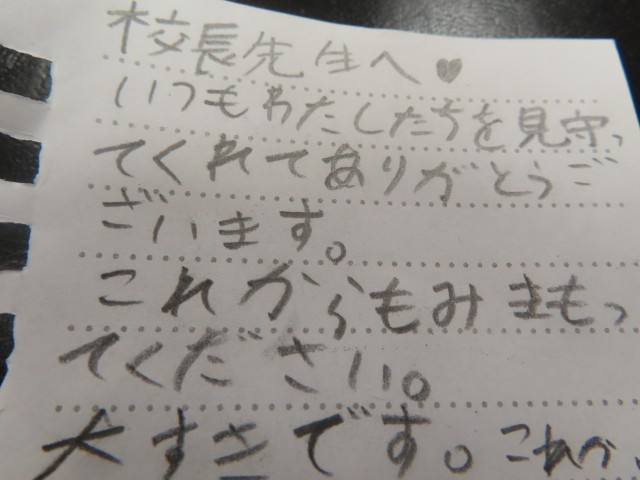 校長先生へ♥
いつもわたしたちを見守っ
てくれてありがとうご
ざいます。
これからもみまもっ
てください。
大すきです。これか